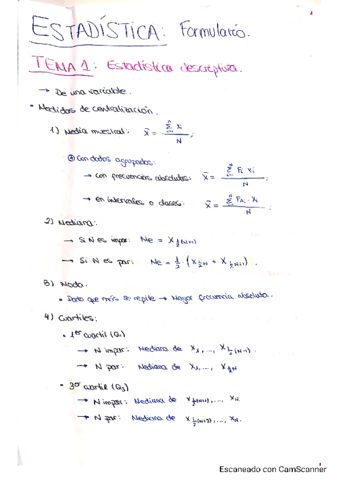 ESTADÍSTICA: Formulario.
TEMA 1: Estadística descriptiva.
→ De una variable.
• Medidas de centralización.
1) Media muestral: x̄ = Σ xi / N ;
⊛ Con datos agrupados:
→ con frecuencias absolutas: x̄ = Σ Fi · xi / N ;
→ en intervalos o clases: x̄ = Σ · xi / N ;
2) Mediana:
→ Si N es impar: Me = X ½(N+1)
→ Si N es par: Me = ½ · (X ½N + X ½N+1) ;
3) Moda.
• Dato que más se repite → Mayor frecuencia absoluta.
4) Cuartiles:
• 1er cuartil (Q1)
→ N impar: Mediana de X1, ..., X ½(N-1) .
→ N par: Mediana de X1, ..., X ½N
• 3er cuartil (Q3)
→ N impar: Mediana de X ½(N+1), ..., XN.
→ N par: Mediana de X ½(N+2), ..., XN.
Escaneado con CamScanner